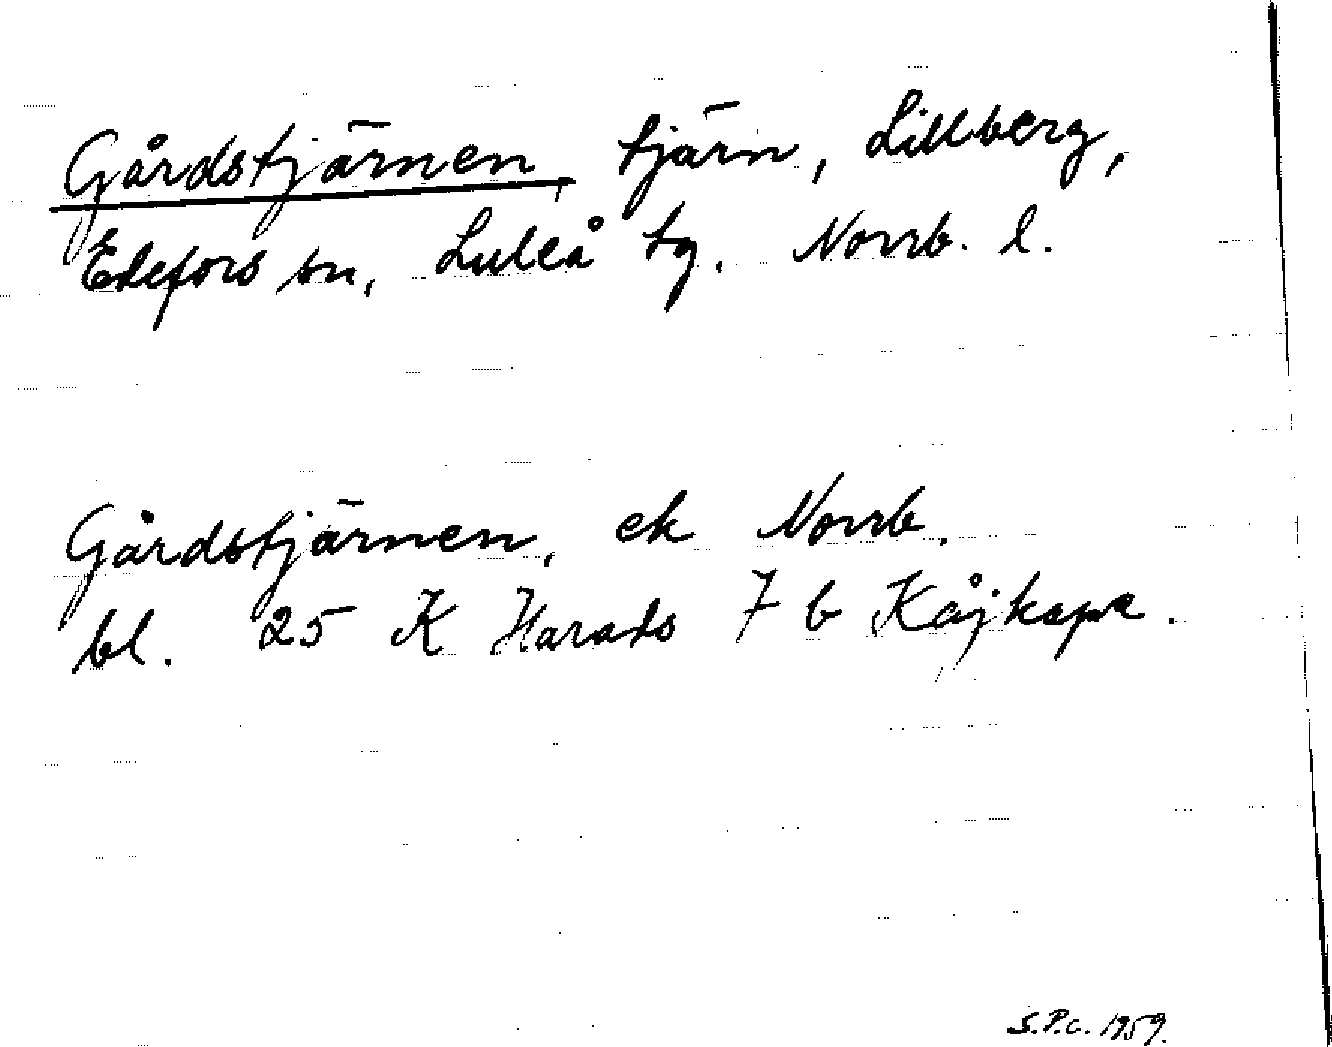 Gårdstjärnen, tjärn, Lillberg,
Edefors sn, Luleå tg, Norrb. l.
Gårdstjärnen, ek Norrb.
bl. 25 K Harads 7 b Kåjkapa.
S.P.C. 1959.